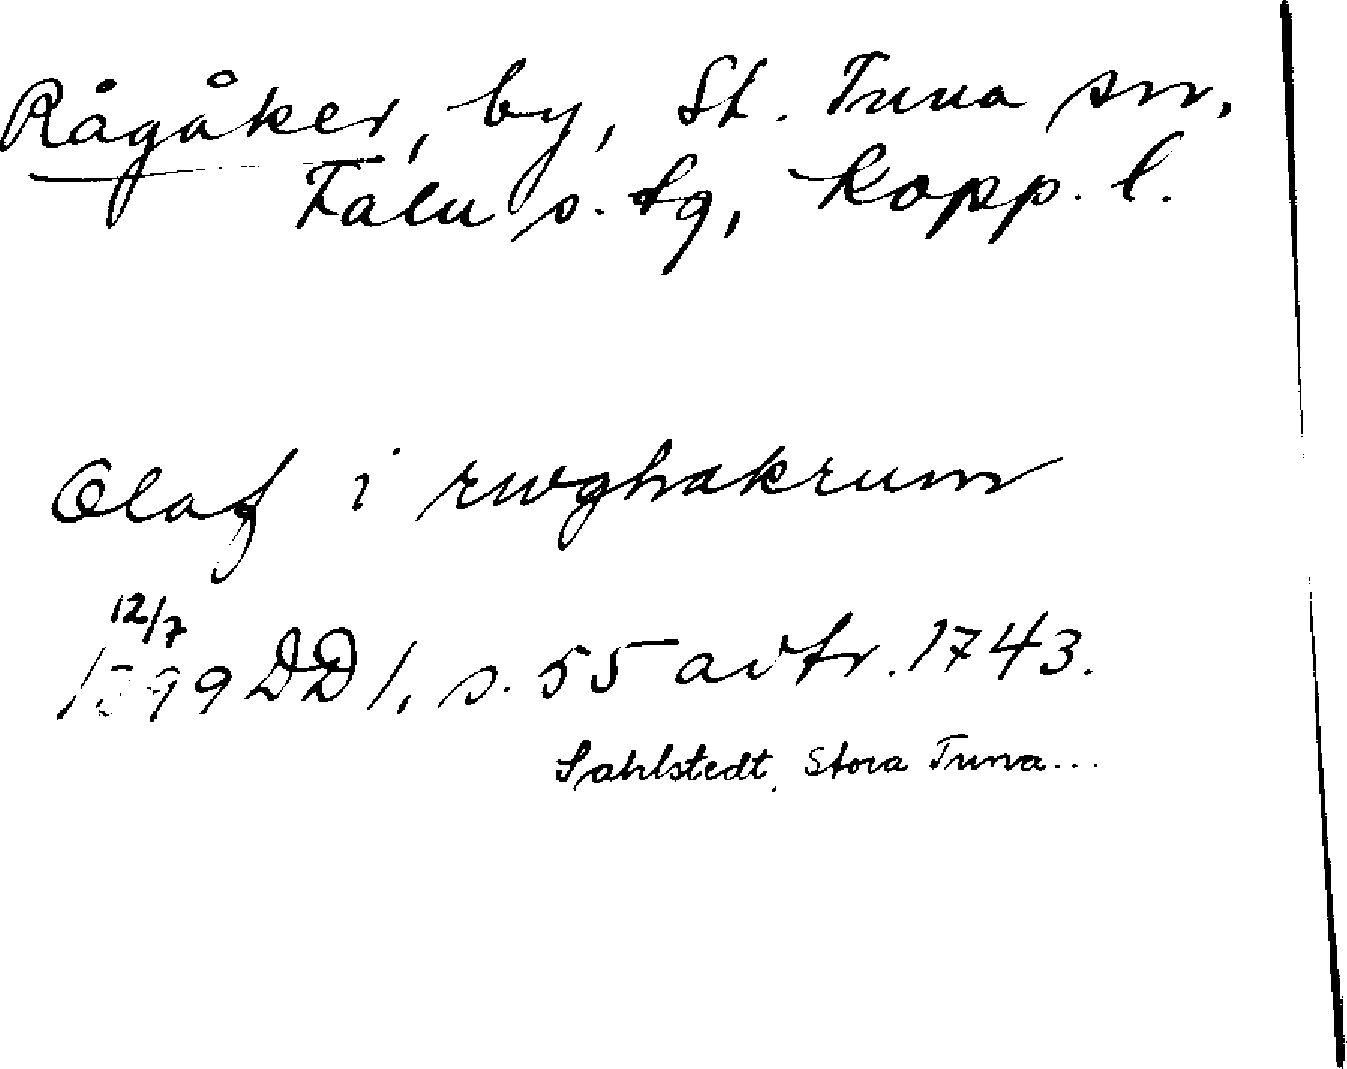 Rågåker, by, St. Tuna sn,
Falu s. tg, Kopp. l.
Olaf i rwghakrum
12/7
1399 DD 1, s. 55 avtr. 1743.
Sahlstedt, Stora Tuna...